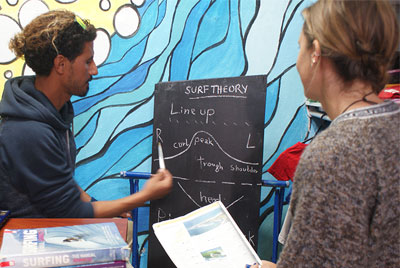 SURF THEORY
Line up
R L
curl peak
trough shoulder
SURFING